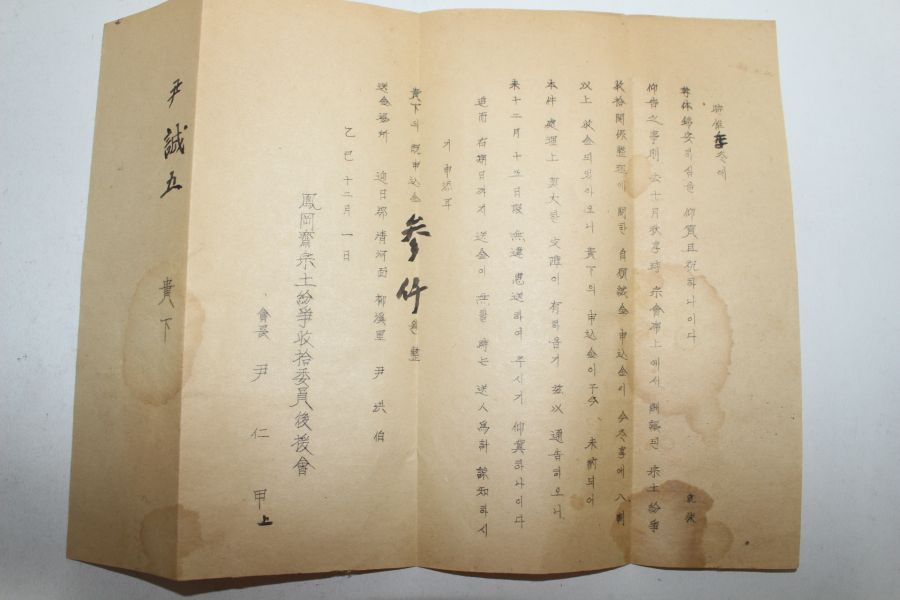 時惟季冬에
尊体錦安하심을 仰賀且祝하나이다
仰告之事則 去十月秋享時 宗會席上에서 宗土紛爭
收拾關係整理에 關한 自願誠金 申込金이 今冬享에 八割
以上 收金되였아오나 貴下의 申込金이 于今 未納되어
本件 處理上 莫大한 支障이 有하옵기 玆以 通告하오니
來十二月 十五日限 無違 惠送하여 주시기 仰冀하나이다
追而 右期日까지 送金이 無할 時는 送人爲計 諒知하시
기 申添耳
貴下의 既申込金 参仟원整
送金場所 迎日郡 清河面 柳溪里 尹 洪 伯
乙巳 十二月 一日
鳳岡齋宗土紛爭收拾委員後援會
會長 尹 仁 甲 上
尹 誠 五 貴下